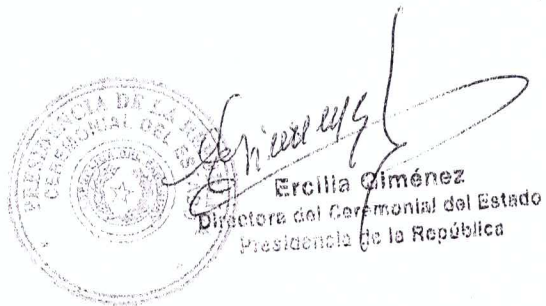 PRESIDENCIA DE LA
CEREMONIAL DEL ES
Ercilia Giménez
Directora del Ceremonial del Estado
Presidencia de la República